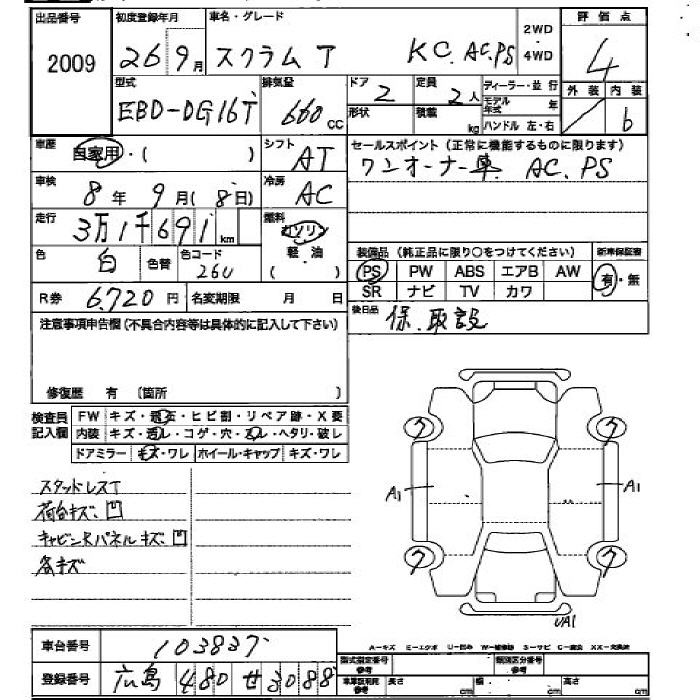 出品番号 初度登録年月 車名・グレード 2WD・4WD 評価点
2009 26 9月 スクラムT KC. AC.PS 4
型式 排気量 ドア 定員 ディーラー・並行 外装 内装
EBD-DG16T 660 CC 2 2人 モデル年式 年
形状 積載 kg ハンドル 左・右 b
車歴 自家用・( ) シフト AT セールスポイント (正常に機能するものに限ります)
ワンオーナー車. AC. PS
車検 8年 9月 (8日) 冷房 AC
走行 3万1千691 km 燃料 ガソリン
軽・油
( )
色 白 色替 色コード 26U 装備品 (純正品に限り○をつけてください) 新車保証書
PS PW ABS エアB AW 有・無
SR ナビ TV カワ
R券 6,720円 名変期限 月 日
後日品 保.取説
注意事項申告欄 (不具合内容等は具体的に記入して下さい)
修復歴 有 〔箇所 〕
検査員記入欄 FW キズ・飛石・ヒビ割・リペア跡・X要
内装 キズ・汚レ・コゲ・穴・スレ・ヘタリ・破レ
ドアミラー キズ・ワレ ホイール・キャップ キズ・ワレ
スタッドレスT
荷台キズ.凹
キャビン下パネル キズ.凹
各キズ
フ フ
A1 A1
フ フ
UA1
A-キズ E-エクボ U-凹み W-補修跡 S-サビ C-腐食 XX-交換済
車台番号 103837
登録番号 広島 480 せ 3088
型式指定番号 参考 類別区分番号 参考
車車証実測用 参考 長さ cm 幅 cm 高さ cm